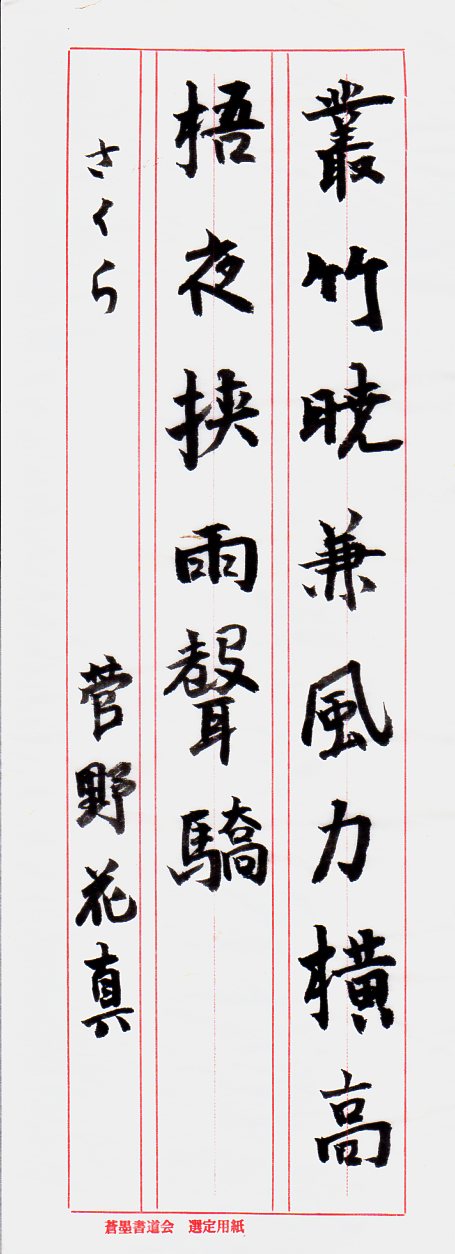 叢竹暁兼風力横高
梧夜挟雨聲驕
さくら 菅野花真
蒼墨書道会 選定用紙